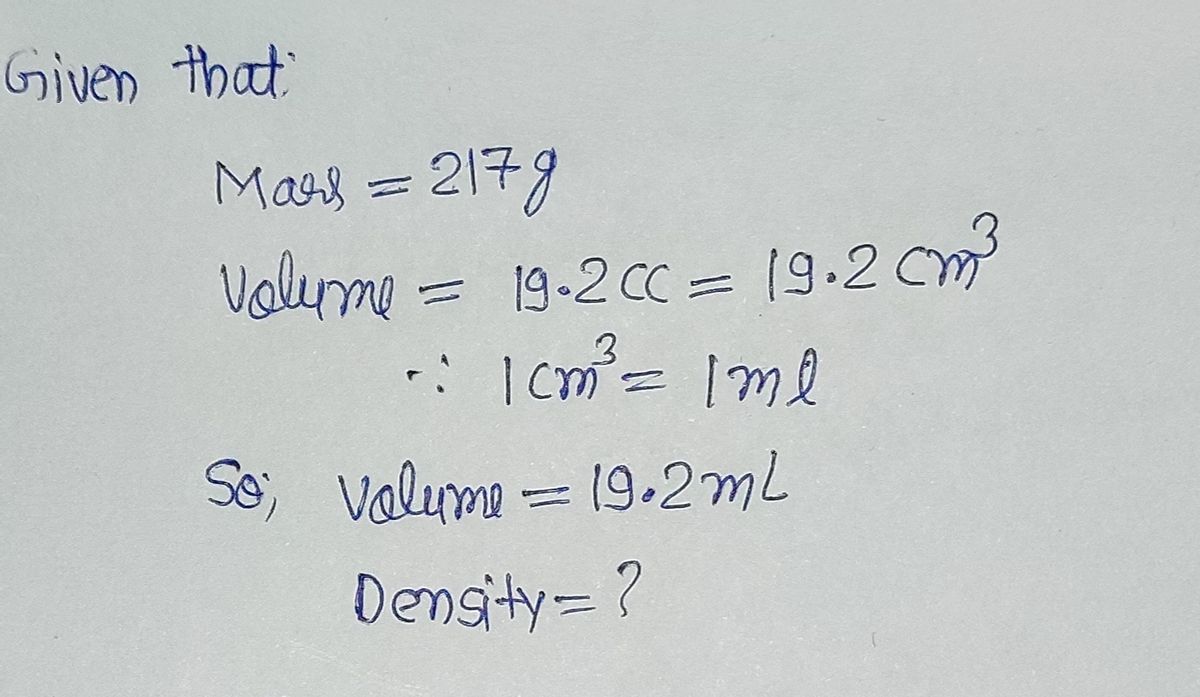 Given that:
Mass = 217g
Volume = 19.2 CC = 19.2 cm³
∵ 1 cm³ = 1 ml
So; volume = 19.2 mL
Density = ?